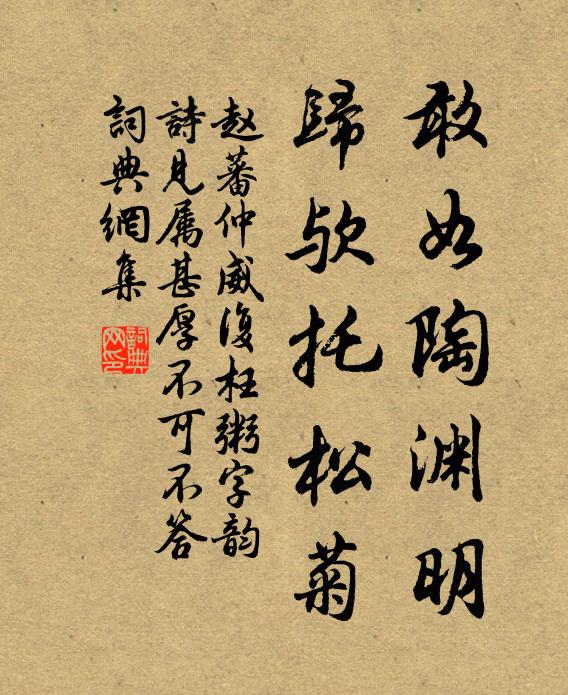 敢如陶渊明
歸欤托松菊
赵蕃仲威復枉粥字韵
詩見属甚厚不可不答
詞典網集
詞典網印